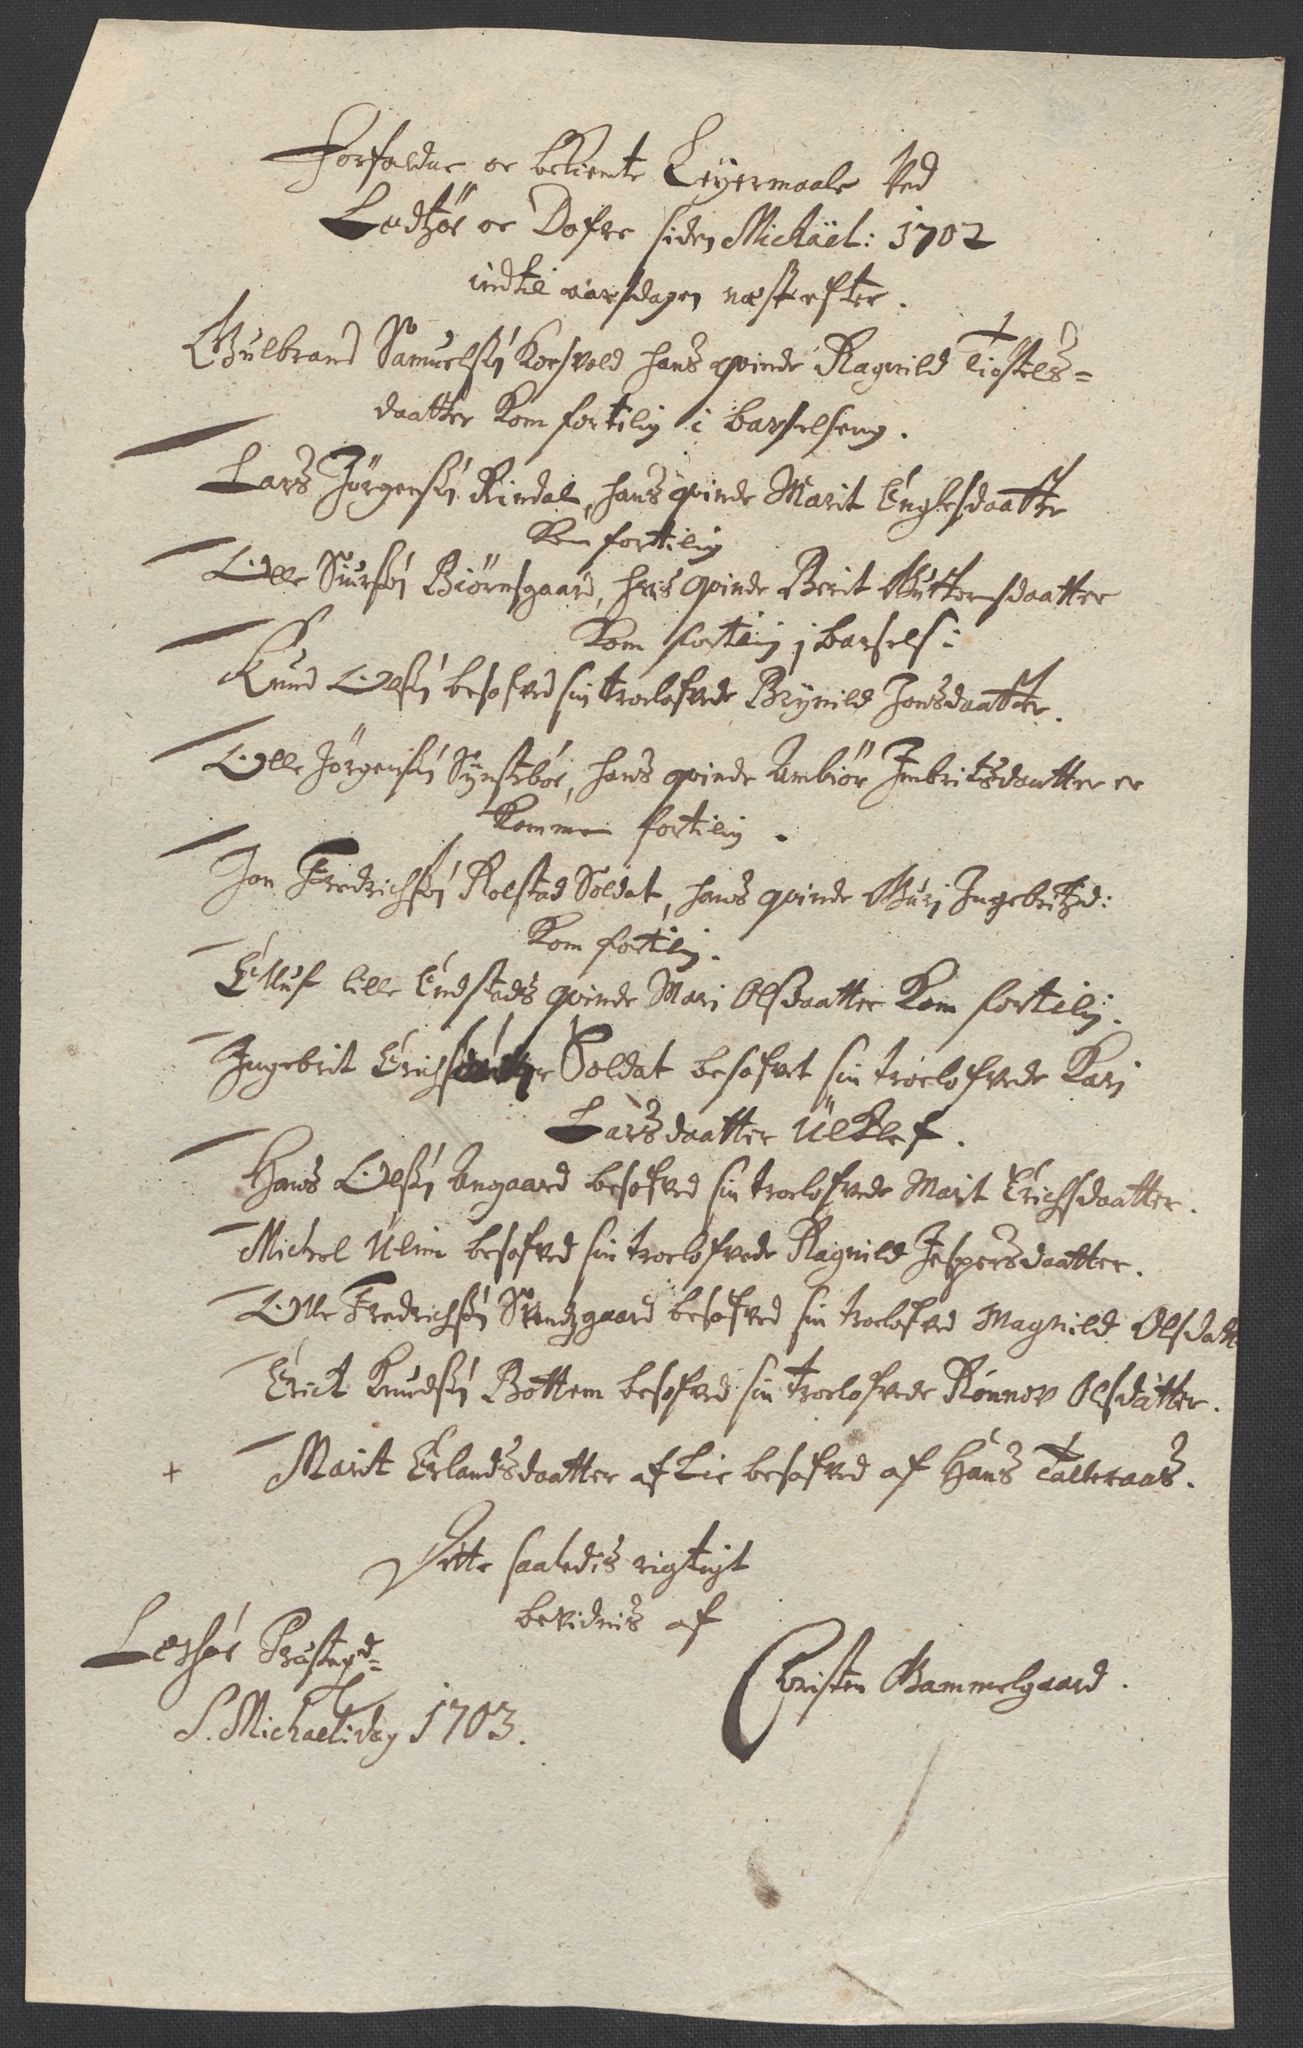 Forfaldne oc bekiente Leyermaale Ved
Ledzøe oc Dofre siden Michäel: 1702
indtil aarsdagen næst efter.
Gulbrand Samuelsøn Korsvold hans qvinde Ragnild Tiostels=
daatter Kom fortilig i barselseng.
Lars Jörgensøn Rindal, hans qvinde Marit Englesdaatter
Kom fortilig
Olle Siursøn Biörnsgaard, hans qvinde Berit Guttormsdaatter
Kom fortilig i barsels:
Knud Olsøn besofved sin troelofvede Brynild Jonsdaatter.
Olle Jörgensøn Synsteböe, hans qvinde Ambiör Imbritsdaatter er
Kommen fortilig.
Jon Fredrichsøn Rolstad Soldat, hans qvinde Guri Ingebritzd:
Kom fortilig.
Elluf lille Endstads qvinde Mari Olsdaatter Kom fortilig.
Ingebrit Erichs Soldat besofvet sin troelofvede Kari
Larsdaatter Ülklef.
Hans Olsøn Angaard besofved sin troelofvede Marit Erichsdaatter.
Michel Ulim besofved sin troelofvede Ragnild Jespersdaatter.
Olle Fredrichsøn Svendzgaard besofved sin troelofved Magnild Olsdatt
Erich Knudsøn Bottem besofved sin troelofvede Rönnov Olsdatter.
+ Marit Erlandsdaatter af Lie besofved af Hans Talleraas.
Dette saaledis rigtigt
bevidnis af
Lessøe Præstegd=
Christen Gammelgaard.
S. Michaeli: dag 1703.